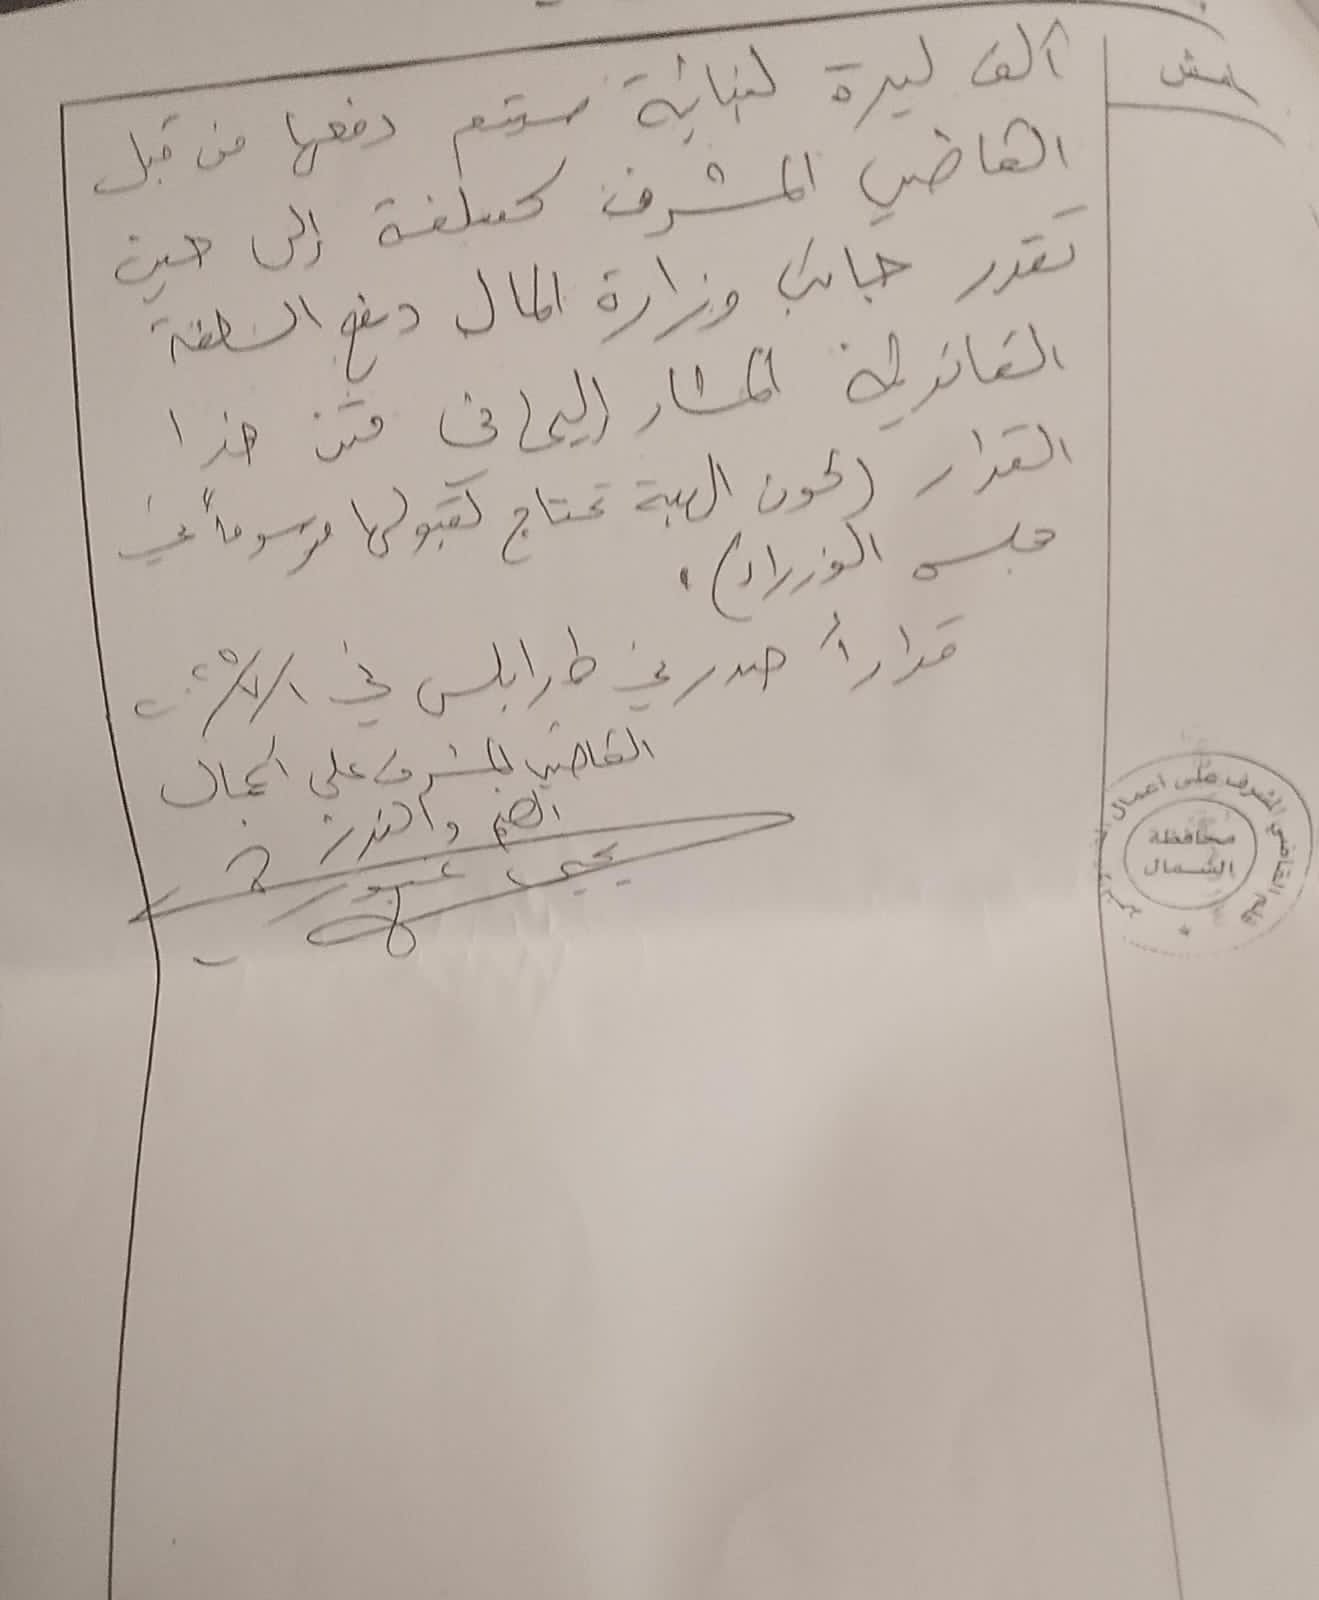 هامش
ألف ليرة لبنانية سيتم دفعها من قبل
القاضي المشرف كسلفة إلى حين
تقدر جانب وزارة المال دفع السلفة
القانونية المشار إليها في متن هذا
القرار (كون الهبة تحتاج لقبولها مرسوماً في
مجلس الوزراء).
قراراً صدر في طرابلس في
القاضي المشرف على أعمال
الضم والفرز
يحيى غبورة
قلم القاضي المشرف على اعمال
محافظة
الشمال